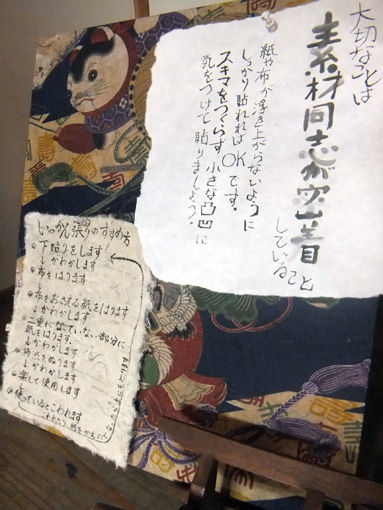 大切なことは
素材同志が密着
していること
紙や布が浮き上がらないように
しっかり貼れれば OK です。
スキマをつくらず、小さな凸凹に
気をつけて貼りましょう。
いっかん張りのすすめ方
下貼りをします
↓かわかします
布をはります
布をおさえる紙をはります
↓かわかします
二重になっていない部分に
紙をはります。
↓かわかします
柿渋をぬります
↓かわかします
楽しく使用します
使っているとこわれます